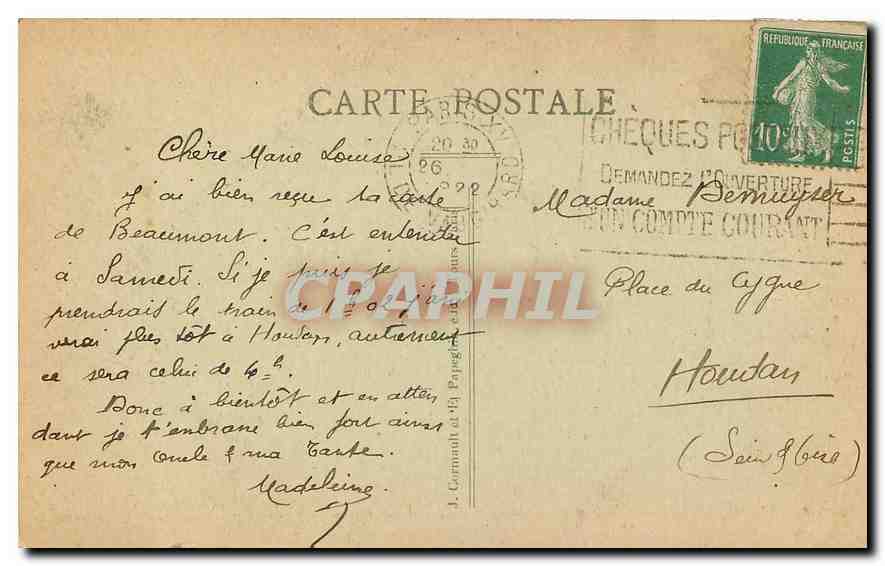 CARTE POSTALE
REPUBLIQUE FRANÇAISE
10c
POSTES
PARIS XVI
20 30
26
CHÈQUES POSTAUX
DEMANDEZ L'OUVERTURE
D'UN COMPTE COURANT
Chère Marie Louise
J'ai bien reçu ta carte
de Beaumont. C'est entendu
à Samedi. Si je puis je
prendrais le train de 1h 02 j'arri
verai plus tôt à Houdan, autrement
ce sera celui de 4h.
Donc à bientôt et en atten
dant je t'embrasse bien fort ainsi
que mon Oncle & ma Tante.
Madeleine
J. Cormault et
Madame Demuyser
Place du Cygne
Houdan
(Seine & Oise)
CPAPHIL